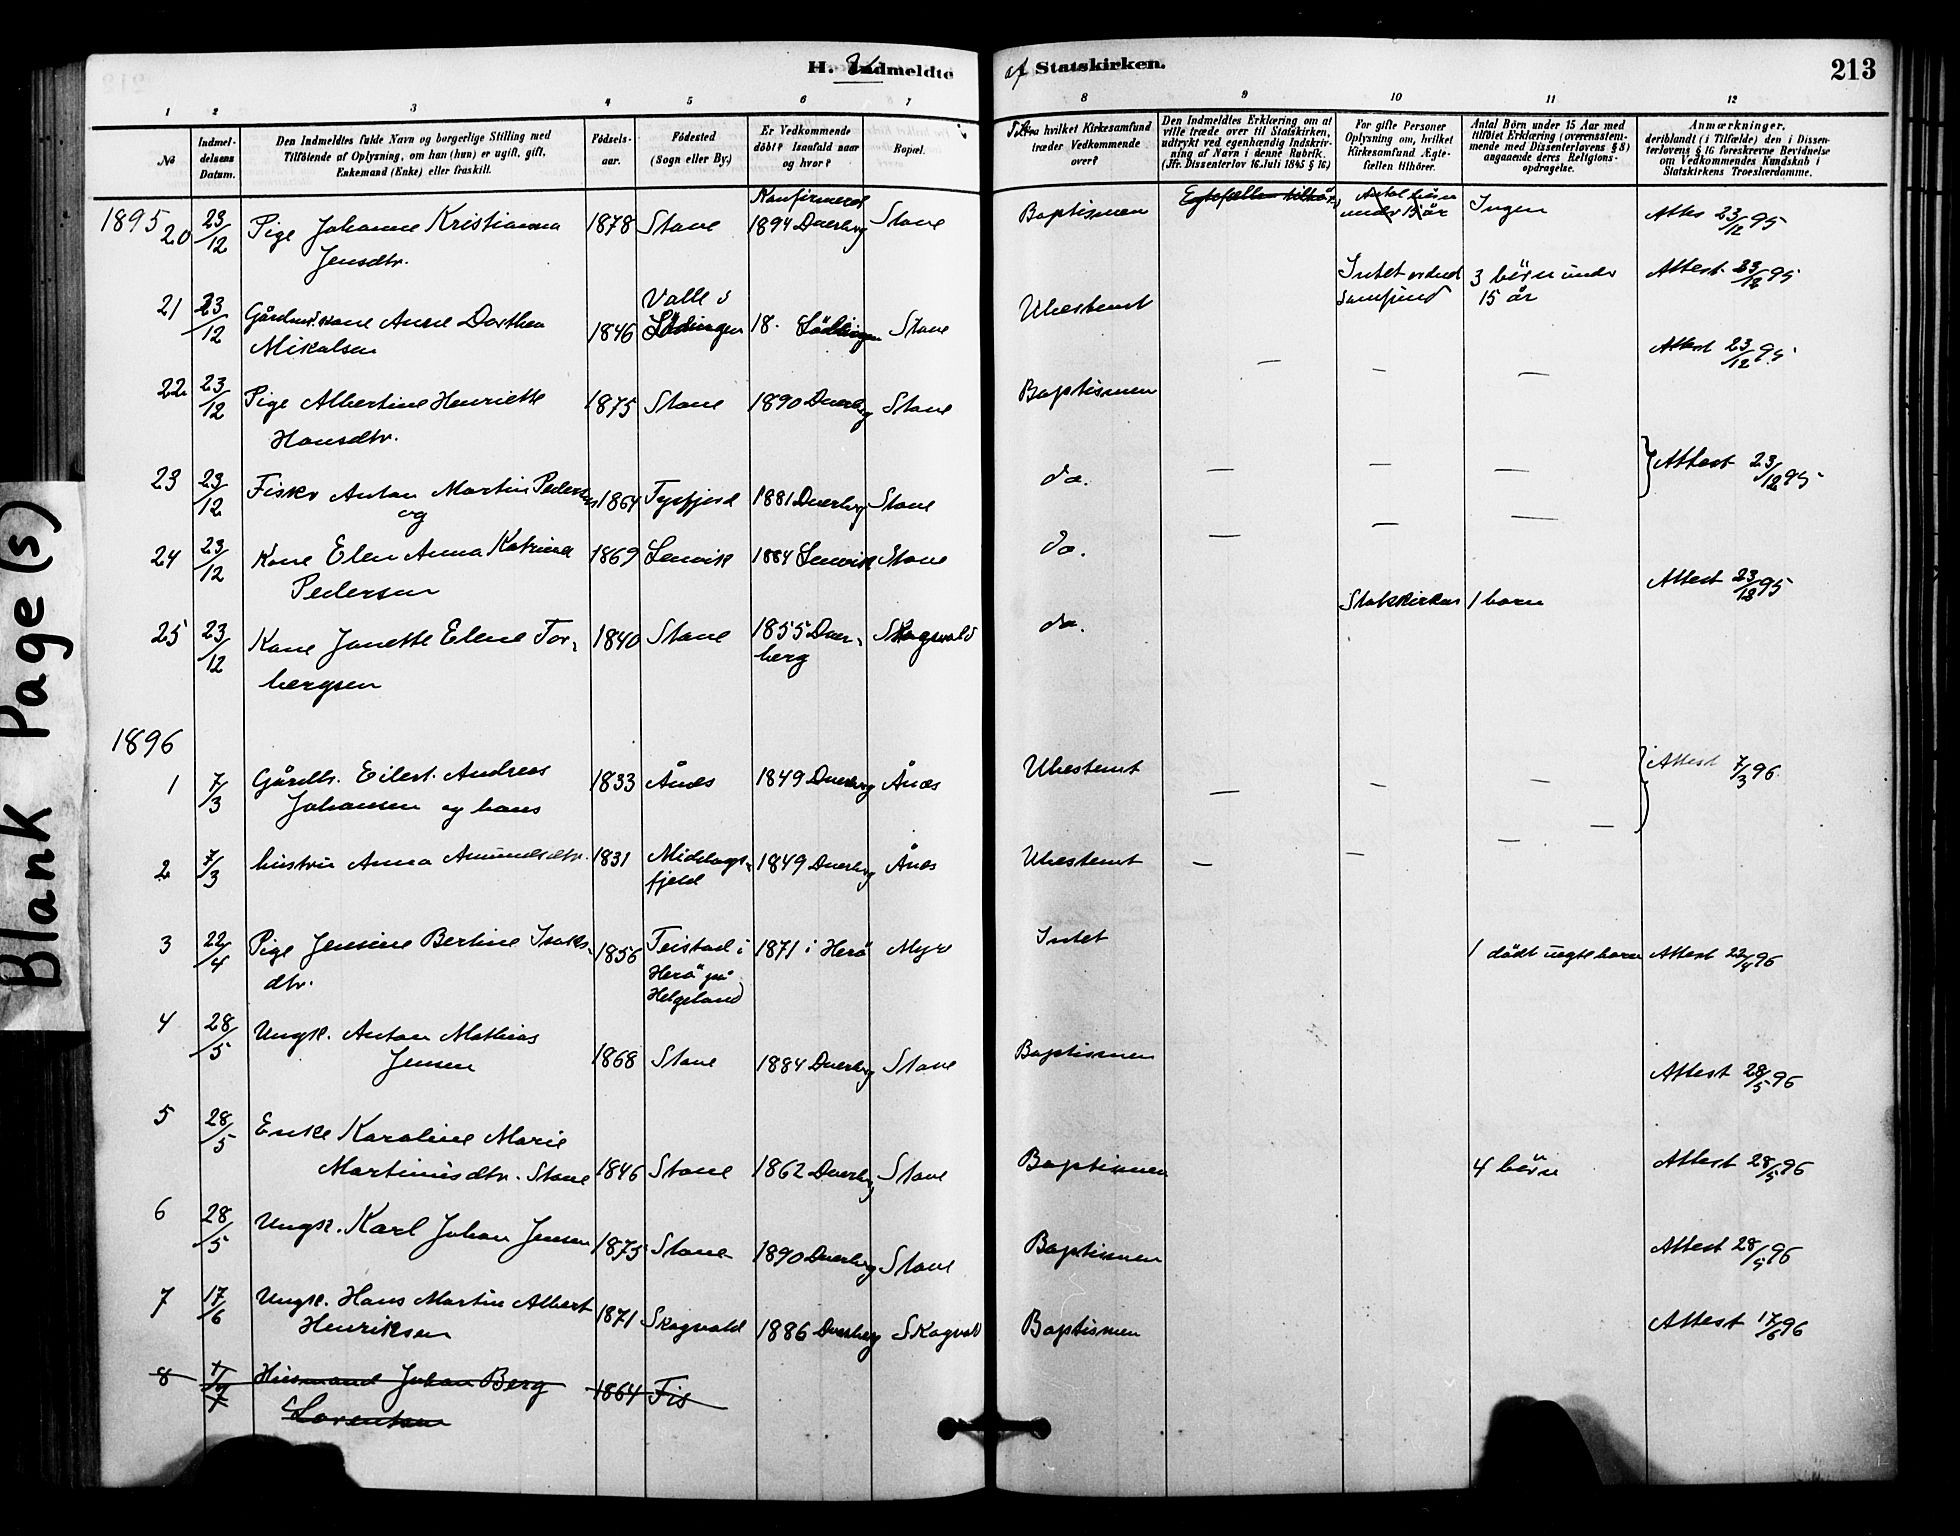 213
H. Ud Indmeldte af Statskirken.
1 2 3 4 5 6 7 8 9 10 11 12
No
Indmel-
delsens
Datum.
Den Indmeldtes fulde Navn og borgerlige Stilling med
Tilföiende af Oplysning, om han (hun) er ugift, gift,
Enkemand (Enke) eller fraskilt.
Födsels-
aar.
Födested
(Sogn eller By.)
Er Vedkommende
döbt? Isaafald naar
og hvor?
Bopæl.
Til hvilket Kirkesamfund
træder Vedkommende
over?
Den Indmeldtes Erklæring om at
ville træde over til Statskirken,
udtrykt ved egenhændig Indskriv-
ning af Navn i denne Rubrik.
(Jfr. Dissenterlov 16 Juli 1845 § 16.)
For gifte Personer
Oplysning om, hvilket
Kirkesamfund Ægte-
fællen tilhörer.
Antal Börn under 15 Aar med
tilföiet Erklæring (overensstem-
mende med Dissenterlovens § 8)
angaaende deres Religions-
opdragelse.
Anmærkninger,
deriblandt (i Tilfælde) den i Dissen-
terlovens § 16 foreskrevne Bevidnelse
om Vedkommendes Kundskab i
Statskirkens Troeslærdomme.
Konfirmeret
Egtefællen tilhör
Antal börn
under 15 år
1895 20 23/12 Pige Johanne Kristianna 1878 Stave 1894 Dverberg Stave Baptismen Ingen Attes 23/12 95
Jensdtr.
21 23/12 Gårdms kone Anne Dorthea 1846 Valle i Lödingen 18. Lödingen Stave Ubestemt Intet ordnet samfund 3 börn under 15 år Attest 23/12 95
Mikalsen
22 23/12 Pige Albertine Henriette 1875 Stave 1890 Dverberg Stave Baptismen — — — Attest 23/12 95
Hansdtr.
23 23/12 Fisker Anton Martin Pedersen 1864 Tysfjord 1881 Dverberg Stave do. — — — Attest 23/12 95
og
24 23/12 Kone Elen Anna Katrine 1869 Lenvik 1884 Lenvik Stave do. — — —
Pedersen
25 23/12 Kone Janette Elene Tor- 1840 Stave 1855 Dver- Skogvold do. Statskirken 1 barn Attest 23/12 95
bergsen berg
1896
1 7/3 Gårdbr. Eilert Andreas 1833 Ånes 1849 Dverberg Ånes Ubestemt — — — Attest 7/3 96.
Johansen og hans
2 7/3 hustru Anna Amundsdtr. 1831 Middags- 1849 Dverberg Ånes Ubestemt — — —
fjeld
3 22/4 Pige Jensine Bertine Isaks- 1856 Teistad i 1871 i Herö Myre Intet 1 dödt uegte barn Attest 22/4 96
dtr. Herö på
Helgeland
4 28/5 Ungk. Anton Mathias
Jensen 1868 Stave 1884 Dverberg Stave Baptismen Attest 28/5 96
5 28/5 Enke Karoline Marie
Martinusdtr. Stave 1846 Stave 1862 Dverberg Stave Baptismen 4 börn Attest 28/5 96
6 28/5 Ungk. Karl Johan Jensen 1875 Stave 1890 Dverberg Stave Baptismen Attest 28/5 96
7 17/6 Ungk. Hans Martin Albert 1871 Skogvold 1886 Dverberg Skogvold Baptismen Attest 17/6 96
Henriksen
8 Husmand Johan Berg 1864 Fis
Lorentsen
Blank Page(s)